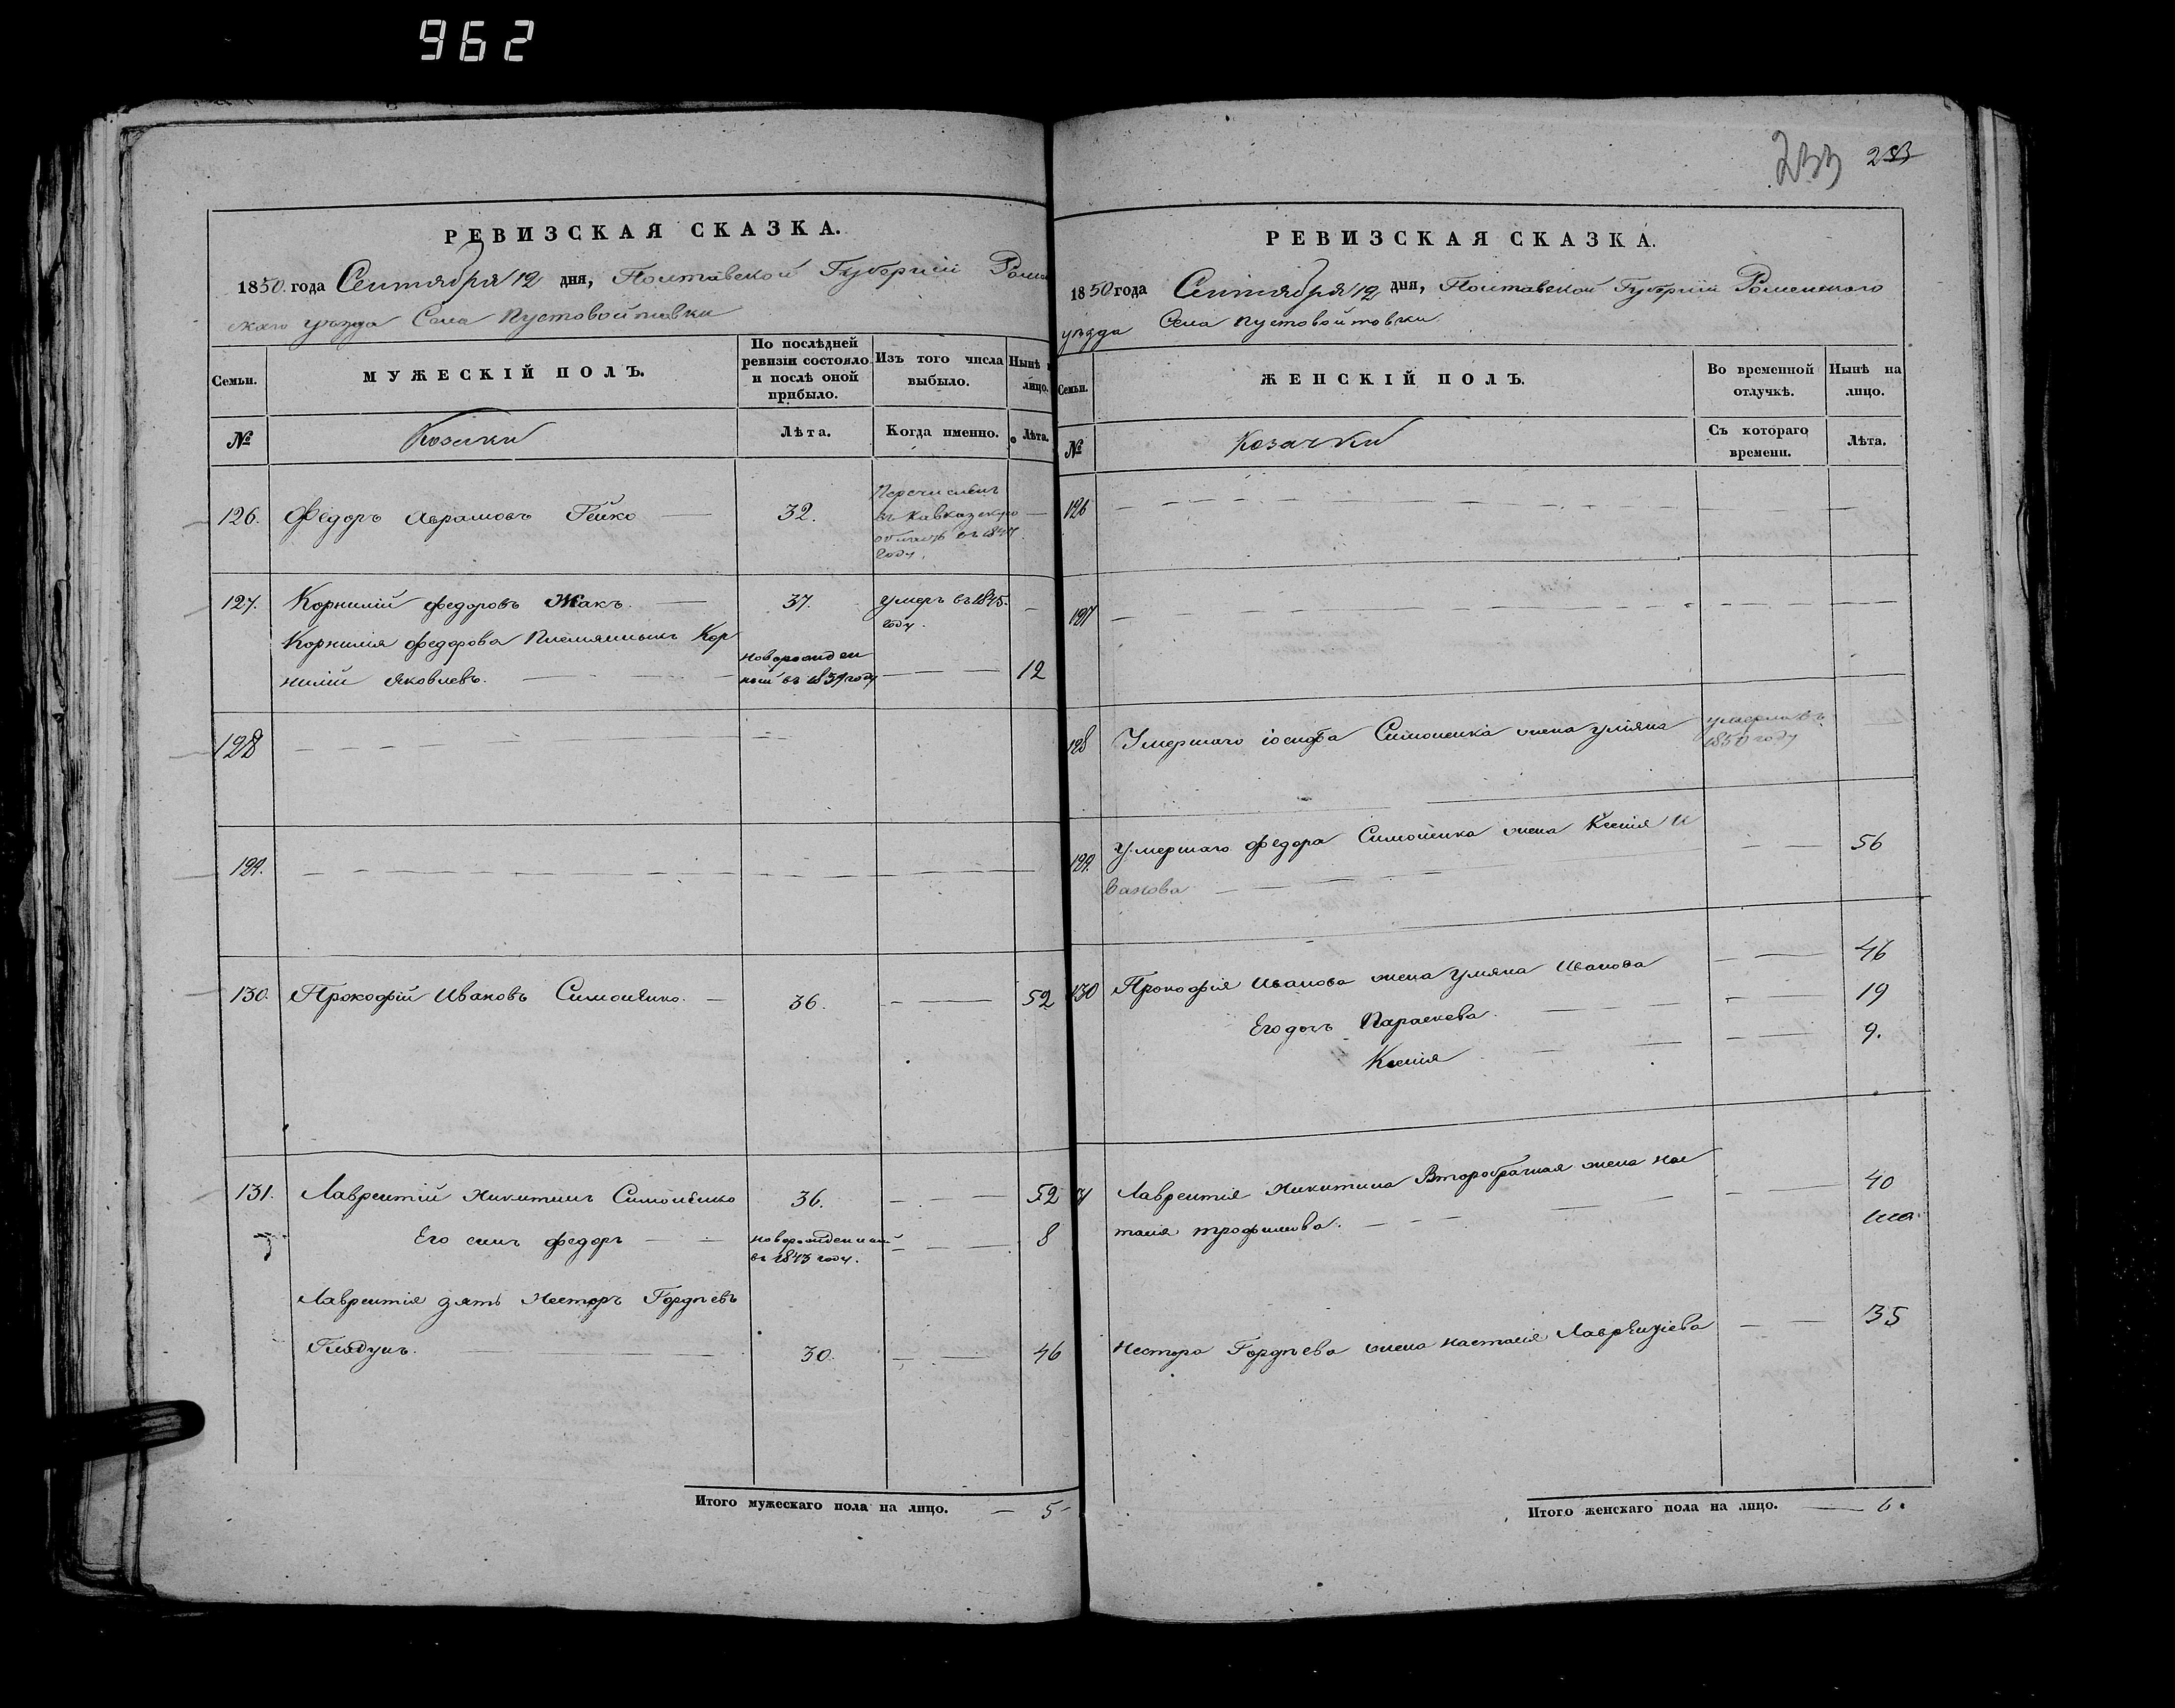 962
233 233
РЕВИЗСКАЯ СКАЗКА.
1850. года Сентября 12 дня, Полтавской Губернiи Ромен
скаго уѣзда Села Пустовойтовки
Семьи.
МУЖЕСКIЙ ПОЛЪ.
По послѣдней ревизiи состояло и послѣ оной прибыло.
Изъ того числа выбыло.
Нынѣ
лицо.
№
Козаки
Лѣта.
Когда именно.
Лѣта.
126. Федоръ Аврамовъ Гейко — 32. Перечисленъ
въ Кавказскую —
область въ 1847
году.
127. Корнилiй Федоровъ Жакъ. — 37. умеръ въ 1845. —
году.
Корнилiя Федорова Племянникъ Кор
нилiй Яковлевъ. — новорожден
ный въ 1839 году — 12
128
129.
130. Прокофiй Ивановъ Симоненко. — 36. — 52
131. Лаврентiй Никитинъ Симоненко 36. — 52
Его сынъ Федоръ — новорожденный
въ 1843 году. — 8
Лаврентiя зять Несторъ Гордѣевъ
Гладунъ. — 30. — 46
Итого мужескаго пола на лицо. — 5
РЕВИЗСКАЯ СКАЗКА.
1850 года Сентября 12 дня, Полтавской Губернiи Роменскаго
уѣзда Села Пустовойтовки
Семьи.
ЖЕНСКIЙ ПОЛЪ.
Во временной отлучкѣ.
Нынѣ на лицо.
№
Козачки
Съ котораго времени.
Лѣта.
126
127
128 Умершаго Iосифа Симоненка жена Улiяна умерла въ
1850 году
129. Умершаго Федора Симоненка жена Ксенiя И
ванова — 56
130 Прокофiя Иванова жена Улiяна Иванова — 46
Его дочь Параскева. — 19
Ксенiя — 9.
Лаврентiя Никитина Второбрачная жена Нас
тасiя Трофимова. — 40
Нестора Гордѣева жена Настасiя Лаврентiева — 35
Итого женскаго пола на лицо. — 6.